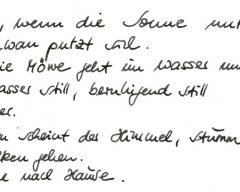 , wenn die Sonne unt
wan putzt sich.
ie Möwe geht im Wasser un
asser still, beruhigend still
er.
n scheint der Himmel, stumm
lken gehen.
e nach Hause.